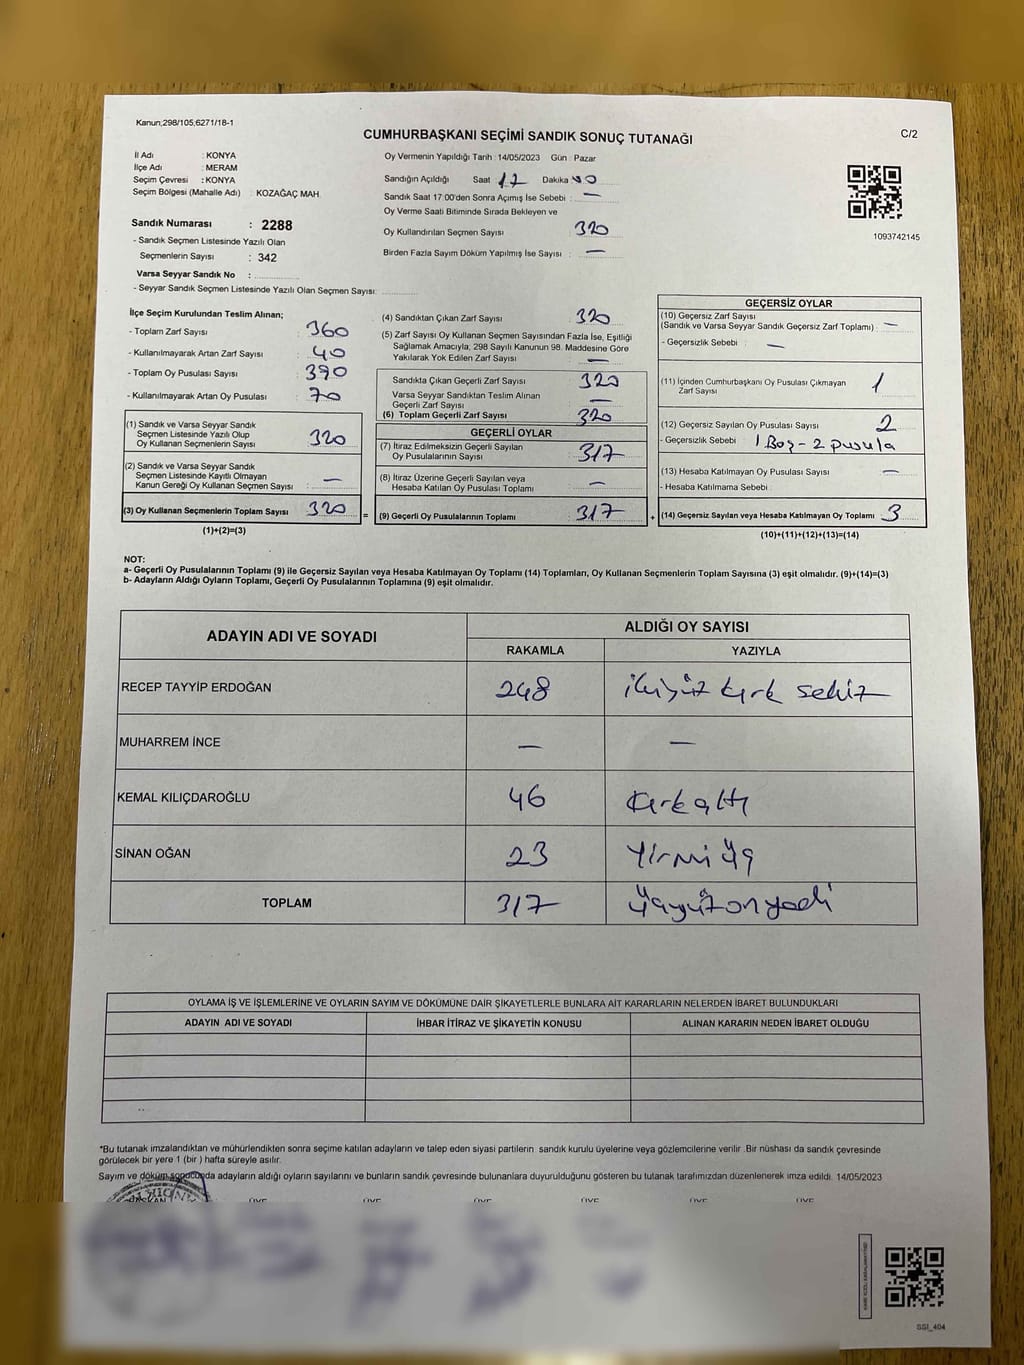 Kanun;298/105;6271/18-1
CUMHURBAŞKANI SEÇİMİ SANDIK SONUÇ TUTANAĞI
C/2
İl Adı : KONYA
İlçe Adı : MERAM
Seçim Çevresi : KONYA
Seçim Bölgesi (Mahalle Adı) : KOZAĞAÇ MAH.
Sandık Numarası : 2288
- Sandık Seçmen Listesinde Yazılı Olan
Seçmenlerin Sayısı : 342
Varsa Seyyar Sandık No :
- Seyyar Sandık Seçmen Listesinde Yazılı Olan Seçmen Sayısı:
Oy Vermenin Yapıldığı Tarih : 14/05/2023 Gün : Pazar
Sandığın Açıldığı Saat 17 Dakika
Sandık Saat 17:00'den Sonra Açımış İse Sebebi : —
Oy Verme Saati Bitiminde Sırada Bekleyen ve
Oy Kullandırılan Seçmen Sayısı 320
Birden Fazla Sayım Döküm Yapılmış İse Sayısı : —
1093742145
İlçe Seçim Kurulundan Teslim Alınan;
- Toplam Zarf Sayısı : 360
- Kullanılmayarak Artan Zarf Sayısı : 40
- Toplam Oy Pusulası Sayısı : 390
- Kullanılmayarak Artan Oy Pusulası : 70
(1) Sandık ve Varsa Seyyar Sandık
Seçmen Listesinde Yazılı Olup
Oy Kullanan Seçmenlerin Sayısı : 320
(2) Sandık ve Varsa Seyyar Sandık
Seçmen Listesinde Kayıtlı Olmayan
Kanun Gereği Oy Kullanan Seçmen Sayısı : —
(3) Oy Kullanan Seçmenlerin Toplam Sayısı : 320 =
(1)+(2)=(3)
(4) Sandıktan Çıkan Zarf Sayısı : 320
(5) Zarf Sayısı Oy Kullanan Seçmen Sayısından Fazla İse, Eşitliği
Sağlamak Amacıyla; 298 Sayılı Kanunun 98. Maddesine Göre
Yakılarak Yok Edilen Zarf Sayısı : —
Sandıkta Çıkan Geçerli Zarf Sayısı : 320
Varsa Seyyar Sandıktan Teslim Alınan
Geçerli Zarf Sayısı : —
(6) Toplam Geçerli Zarf Sayısı : 320
GEÇERLİ OYLAR
(7) İtiraz Edilmeksizin Geçerli Sayılan
Oy Pusulalarının Sayısı : 317
(8) İtiraz Üzerine Geçerli Sayılan veya
Hesaba Katılan Oy Pusulası Toplamı : —
(9) Geçerli Oy Pusulalarının Toplamı : 317 +
GEÇERSİZ OYLAR
(10) Geçersiz Zarf Sayısı
(Sandık ve Varsa Seyyar Sandık Geçersiz Zarf Toplamı) : —
- Geçersizlik Sebebi : —
(11) İçinden Cumhurbaşkanı Oy Pusulası Çıkmayan
Zarf Sayısı : 1
(12) Geçersiz Sayılan Oy Pusulası Sayısı : 2
- Geçersizlik Sebebi : 1 Boş - 2 pusula
(13) Hesaba Katılmayan Oy Pusulası Sayısı : —
- Hesaba Katılmama Sebebi :
(14) Geçersiz Sayılan veya Hesaba Katılmayan Oy Toplamı : 3
(10)+(11)+(12)+(13)=(14)
NOT:
a- Geçerli Oy Pusulalarının Toplamı (9) ile Geçersiz Sayılan veya Hesaba Katılmayan Oy Toplamı (14) Toplamları, Oy Kullanan Seçmenlerin Toplam Sayısına (3) eşit olmalıdır. (9)+(14)=(3)
b- Adayların Aldığı Oyların Toplamı, Geçerli Oy Pusulalarının Toplamına (9) eşit olmalıdır.
ADAYIN ADI VE SOYADI ALDIĞI OY SAYISI
RAKAMLA YAZIYLA
RECEP TAYYİP ERDOĞAN 248 ikiyüz kırk sekiz
MUHARREM İNCE — —
KEMAL KILIÇDAROĞLU 46 Kırk altı
SİNAN OĞAN 23 Yirmi üç
TOPLAM 317 Üçyüz on yedi
OYLAMA İŞ VE İŞLEMLERİNE VE OYLARIN SAYIM VE DÖKÜMÜNE DAİR ŞİKAYETLERLE BUNLARA AİT KARARLARIN NELERDEN İBARET BULUNDUKLARI
ADAYIN ADI VE SOYADI İHBAR İTİRAZ VE ŞİKAYETİN KONUSU ALINAN KARARIN NEDEN İBARET OLDUĞU
*Bu tutanak imzalandıktan ve mühürlendikten sonra seçime katılan adayların ve talep eden siyasi partilerin sandık kurulu üyelerine veya gözlemcilerine verilir. Bir nüshası da sandık çevresinde
görülecek bir yere 1 (bir ) hafta süreyle asılır.
Sayım ve döküm sonucunda adayların aldığı oyların sayılarını ve bunların sandık çevresinde bulunanlara duyurulduğunu gösteren bu tutanak tarafımızdan düzenlenerek imza edildi. 14/05/2023
BAŞKAN ÜYE ÜYE ÜYE ÜYE ÜYE ÜYE
SSI_404